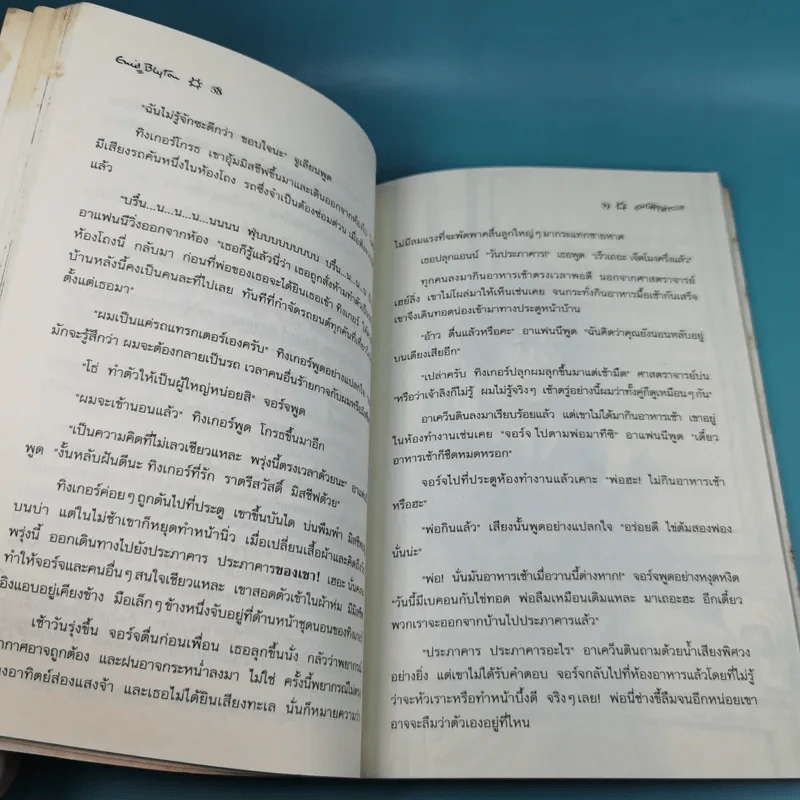 Enid Blyton 38
"ฉันไม่รู้จักซะดีกว่า ขอบใจนะ" จูเลียนพูด
ทิงเกอร์โกรธ เขาอุ้มมิสชีฟขึ้นมาและเดินออกจากห้องไป
มีเสียงรถคันหนึ่งในห้องโถง รถซึ่งจำเป็นต้องซ่อมด่วน
แล้ว
"บรื้น...น...น...น...นนนน ฟุ่บบบบบบบบ บรื้น...น...น
อาแฟนนีวิ่งออกจากห้อง "เธอก็รู้แล้วนี่ว่า เธอถูกสั่งห้ามทำตัว
ห้องโถงนี้ กลับมา ก่อนที่พ่อของเธอจะได้ยินเธอเข้า ทิงเกอร์
บ้านหลังนี้คงเป็นคนละที่ไปเลย ทันทีที่กำจัดรถยนต์ทุกคัน
ตั้งแต่เธอมา"
"ผมเป็นแค่รถแทรกเตอร์เองครับ" ทิงเกอร์พูดอย่างแปลกใจ
มักจะรู้สึกว่า ผมจะต้องกลายเป็นรถ เวลาคนอื่นร้ายกาจกับผม
"โธ่ ทำตัวให้เป็นผู้ใหญ่หน่อยสิ" จอร์จพูด
"ผมจะเข้านอนแล้ว" ทิงเกอร์พูด โกรธขึ้นมาอีก
"เป็นความคิดที่ไม่เลวเชียวแหละ พรุ่งนี้ตรงเวลาด้วยนะ"
พูด "งั้นหลับฝันดีนะ ทิงเกอร์ที่รัก ราตรีสวัสดิ์ มิสชีฟด้วย"
ทิงเกอร์ค่อยๆ ถูกดันไปที่ประตู เขาขึ้นบันได บ่นพึมพำ
บนบ่า แต่ในไม่ช้าเขาก็หยุดทำหน้านิ่ว เมื่อเปลี่ยนเสื้อผ้าและคิดถึง
พรุ่งนี้ ออกเดินทางไปยังประภาคาร ประภาคารของเขา! เฮอะ
ทำให้จอร์จและคนอื่นๆ สนใจเชียวแหละ เขาสอดตัวเข้าในผ้าห่ม
อิงแอบอยู่เคียงข้าง มือเล็กๆ ข้างหนึ่งจับอยู่ที่ด้านหน้าชุดนอนของ
เช้าวันรุ่งขึ้น จอร์จตื่นก่อนเพื่อน เธอลุกขึ้นนั่ง กลัวว่าพยากรณ์
อาจถูกต้อง และฝนอาจกระหน่ำลงมา ไม่ใช่ ครั้งนี้พยากรณ์
อาทิตย์ส่องแสงจ้า และเธอไม่ได้ยินเสียงทะเล นั่นก็หมายความว่า
39
ไม่มีลมแรงที่จะพัดพาคลื่นลูกใหญ่ๆ มากระแทกชายหาด
เธอปลุกแอนน์ "วันประภาคาร!" เธอพูด "เร็วเถอะ เจ็ดโมงครึ่งแล้ว"
ทุกคนลงมากินอาหารเช้าตรงเวลาพอดี นอกจากศาสตราจารย์
เฮย์ลิ่ง เขาไม่โผล่มาให้เห็นเช่นเคย จนกระทั่งกินอาหารมื้อเช้ากันเสร็จ
เขาจึงเดินทอดน่องเข้ามาทางประตูหน้าบ้าน
"อ้าว ตื่นแล้วหรือคะ" อาแฟนนีพูด "ฉันคิดว่าคุณยังนอนหลับอยู่
บนเตียงเสียอีก"
"เปล่าครับ ทิงเกอร์ปลุกผมลุกขึ้นมาแต่เช้ามืด" ศาสตราจารย์บ่น
"หรือว่าเจ้าลิงก็ไม่รู้ ผมไม่รู้จริงๆ เช้าตรู่อย่างนี้ผมว่าทั้งคู่ก็ดูเหมือนๆ กัน"
อาเคว็นตินลงมาเรียบร้อยแล้ว แต่เขาไม่ได้มากินอาหารเช้า เขาอยู่
ในห้องทำงานเช่นเคย "จอร์จ ไปตามพ่อมาทีซิ" อาแฟนนีพูด "เดี๋ยว
อาหารเช้าก็ชืดหมดหรอก"
จอร์จไปที่ประตูห้องทำงานแล้วเคาะ "พ่อฮะ! ไม่กินอาหารเช้า
หรือฮะ"
"พ่อกินแล้ว" เสียงนั้นพูดอย่างแปลกใจ "อร่อยดี ไข่ต้มสองฟอง
นั่นน่ะ"
"พ่อ! นั่นมันอาหารเช้าเมื่อวานนี้ต่างหาก!" จอร์จพูดอย่างหงุดหงิด
"วันนี้มีเบคอนกับไข่ทอด พ่อลืมเหมือนเดิมแหละ มาเถอะฮะ อีกเดี๋ยว
พวกเราจะออกจากบ้านไปประภาคารแล้ว"
"ประภาคาร ประภาคารอะไร" อาเคว็นตินถามด้วยน้ำเสียงพิศวง
อย่างยิ่ง แต่เขาไม่ได้รับคำตอบ จอร์จกลับไปที่ห้องอาหารแล้วโดยที่ไม่รู้
ว่าจะหัวเราะหรือทำหน้าบึ้งดี จริงๆ เลย! พ่อนี่ช่างขี้ลืมจนอีกหน่อยเขา
อาจจะลืมว่าตัวเองอยู่ที่ไหน